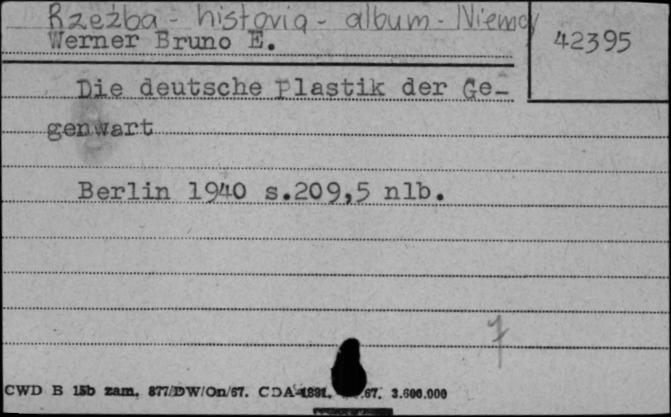 Rzeźba - historia - album - Niemcy
Werner Bruno E.
42395
Die deutsche Plastik der Ge-
genwart
Berlin 1940 s.209,5 nlb.
7
CWD B 15b zam. 877/DW/On/67. CDA-1881. .67. 3.600.000